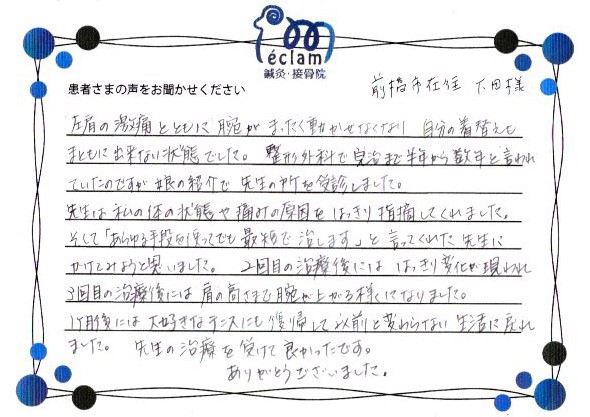 éclam
鍼灸・接骨院
患者さまの声をお聞かせください
前橋市在住 下田様
左肩の激痛とともに腕がまったく動かせなくなり 自分の着替えも
まともに出来ない状態でした。 整形外科で完治まで半年から数年と言われ
ていたのですが娘の紹介で先生の所を受診しました。
先生は私の体の状態や痛みの原因をはっきり指摘してくれました。
そして「あらゆる手段を使ってでも最短で治します」と言ってくれた先生に
かけてみようと思いました。 2回目の治療後には はっきり変化が現われ
3回目の治療後には肩の高さまで腕が上がる様になりました。
1ヶ月後には大好きなテニスにも復帰して以前と変わらない生活に戻れ
ました。 先生の治療を受けて良かったです。
ありがとうございました。